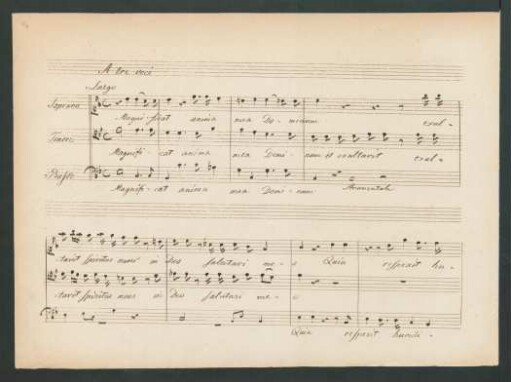 A tre voci
Largo
Soprano Magnificat anima mea Dominum exul-
Tenore Magnifi-cat anima mea Domi-num et exultavit exul-
Basso Magnifi-cat anima mea Domi-num
tavit spiritus meus in deo salutari me-o Quia respexit hu-
tavit spiritus meus in Deo salutari me-o
Quia respexit humili-